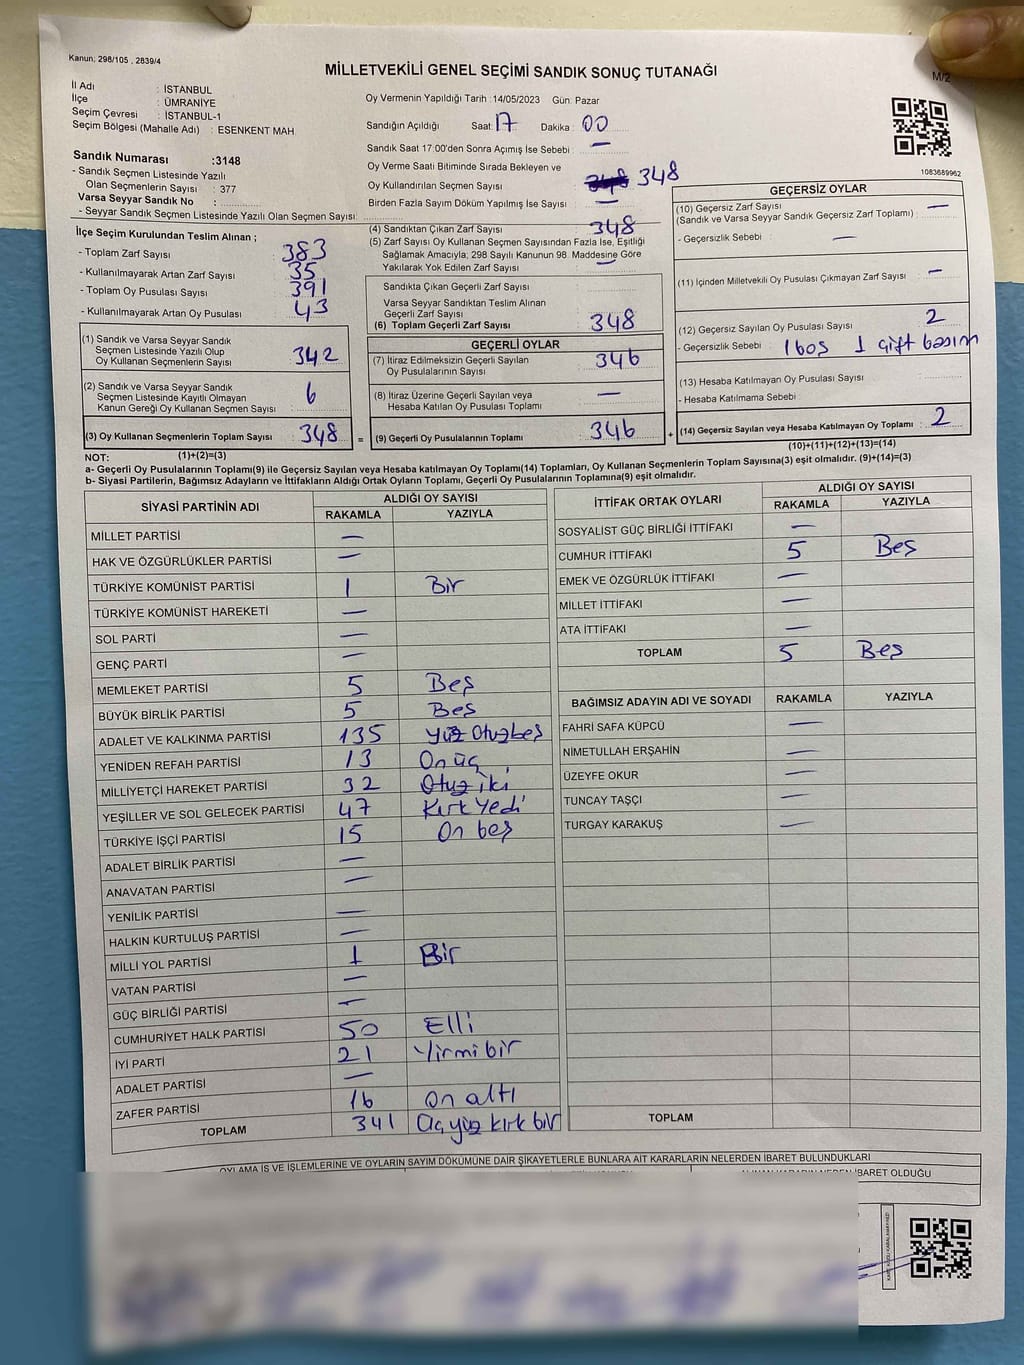 Kanun; 298/105 , 2839/4
MİLLETVEKİLİ GENEL SEÇİMİ SANDIK SONUÇ TUTANAĞI
M/2
İl Adı : İSTANBUL
İlçe : ÜMRANİYE
Seçim Çevresi : İSTANBUL-1
Seçim Bölgesi (Mahalle Adı) : ESENKENT MAH
Sandık Numarası :3148
- Sandık Seçmen Listesinde Yazılı
Olan Seçmenlerin Sayısı : 377
Varsa Seyyar Sandık No :
- Seyyar Sandık Seçmen Listesinde Yazılı Olan Seçmen Sayısı:
Oy Vermenin Yapıldığı Tarih :14/05/2023 Gün: Pazar
Sandığın Açıldığı Saat: 17 Dakika: 00
Sandık Saat 17:00'den Sonra Açımış İse Sebebi : —
Oy Verme Saati Bitiminde Sırada Bekleyen ve
Oy Kullandırılan Seçmen Sayısı : 348
Birden Fazla Sayım Döküm Yapılmış İse Sayısı : —
1083689962
İlçe Seçim Kurulundan Teslim Alınan ;
- Toplam Zarf Sayısı : 383
- Kullanılmayarak Artan Zarf Sayısı : 35
- Toplam Oy Pusulası Sayısı : 391
- Kullanılmayarak Artan Oy Pusulası : 43
(1) Sandık ve Varsa Seyyar Sandık
Seçmen Listesinde Yazılı Olup
Oy Kullanan Seçmenlerin Sayısı : 342
(2) Sandık ve Varsa Seyyar Sandık
Seçmen Listesinde Kayıtlı Olmayan
Kanun Gereği Oy Kullanan Seçmen Sayısı : 6
(3) Oy Kullanan Seçmenlerin Toplam Sayısı : 348
(1)+(2)=(3)
(4) Sandıktan Çıkan Zarf Sayısı : 348
(5) Zarf Sayısı Oy Kullanan Seçmen Sayısından Fazla İse, Eşitliği
Sağlamak Amacıyla; 298 Sayılı Kanunun 98. Maddesine Göre
Yakılarak Yok Edilen Zarf Sayısı : —
Sandıkta Çıkan Geçerli Zarf Sayısı :
Varsa Seyyar Sandıktan Teslim Alınan
Geçerli Zarf Sayısı :
(6) Toplam Geçerli Zarf Sayısı : 348
GEÇERLİ OYLAR
(7) İtiraz Edilmeksizin Geçerli Sayılan
Oy Pusulalarının Sayısı : 346
(8) İtiraz Üzerine Geçerli Sayılan veya
Hesaba Katılan Oy Pusulası Toplamı : —
= (9) Geçerli Oy Pusulalarının Toplamı : 346
GEÇERSİZ OYLAR
(10) Geçersiz Zarf Sayısı : —
(Sandık ve Varsa Seyyar Sandık Geçersiz Zarf Toplamı)
- Geçersizlik Sebebi : —
(11) İçinden Milletvekili Oy Pusulası Çıkmayan Zarf Sayısı : —
(12) Geçersiz Sayılan Oy Pusulası Sayısı : 2
- Geçersizlik Sebebi : 1 boş 1 çift basım
(13) Hesaba Katılmayan Oy Pusulası Sayısı :
- Hesaba Katılmama Sebebi :
+ (14) Geçersiz Sayılan veya Hesaba Katılmayan Oy Toplamı : 2
(10)+(11)+(12)+(13)=(14)
NOT:
a- Geçerli Oy Pusulalarının Toplamı(9) ile Geçersiz Sayılan veya Hesaba katılmayan Oy Toplamı(14) Toplamları, Oy Kullanan Seçmenlerin Toplam Sayısına(3) eşit olmalıdır. (9)+(14)=(3)
b- Siyasi Partilerin, Bağımsız Adayların ve İttifakların Aldığı Ortak Oyların Toplamı, Geçerli Oy Pusulalarının Toplamına(9) eşit olmalıdır.
SİYASİ PARTİNİN ADI ALDIĞI OY SAYISI
RAKAMLA YAZIYLA
MİLLET PARTİSİ —
HAK VE ÖZGÜRLÜKLER PARTİSİ —
TÜRKİYE KOMÜNİST PARTİSİ 1 Bir
TÜRKİYE KOMÜNİST HAREKETİ —
SOL PARTİ —
GENÇ PARTİ —
MEMLEKET PARTİSİ 5 Beş
BÜYÜK BİRLİK PARTİSİ 5 Beş
ADALET VE KALKINMA PARTİSİ 135 yüz Otuzbeş
YENİDEN REFAH PARTİSİ 13 On üç
MİLLİYETÇİ HAREKET PARTİSİ 32 Otuz iki
YEŞİLLER VE SOL GELECEK PARTİSİ 47 Kırk Yedi
TÜRKİYE İŞÇİ PARTİSİ 15 On beş
ADALET BİRLİK PARTİSİ —
ANAVATAN PARTİSİ —
YENİLİK PARTİSİ —
HALKIN KURTULUŞ PARTİSİ —
MİLLİ YOL PARTİSİ 1 Bir
VATAN PARTİSİ —
GÜÇ BİRLİĞİ PARTİSİ —
CUMHURİYET HALK PARTİSİ 50 Elli
İYİ PARTİ 21 Yirmi bir
ADALET PARTİSİ —
ZAFER PARTİSİ 16 On altı
TOPLAM 341 Üçyüz kırk bir
İTTİFAK ORTAK OYLARI ALDIĞI OY SAYISI
RAKAMLA YAZIYLA
SOSYALİST GÜÇ BİRLİĞİ İTTİFAKI —
CUMHUR İTTİFAKI 5 Beş
EMEK VE ÖZGÜRLÜK İTTİFAKI —
MİLLET İTTİFAKI —
ATA İTTİFAKI —
TOPLAM 5 Beş
BAĞIMSIZ ADAYIN ADI VE SOYADI RAKAMLA YAZIYLA
FAHRİ SAFA KÜPCÜ —
NİMETULLAH ERŞAHİN —
ÜZEYFE OKUR —
TUNCAY TAŞÇI —
TURGAY KARAKUŞ —
TOPLAM
OYLAMA İŞ VE İŞLEMLERİNE VE OYLARIN SAYIM DÖKÜMÜNE DAİR ŞİKAYETLERLE BUNLARA AİT KARARLARIN NELERDEN İBARET BULUNDUKLARI
ALINAN KARARIN NEDEN İBARET OLDUĞU